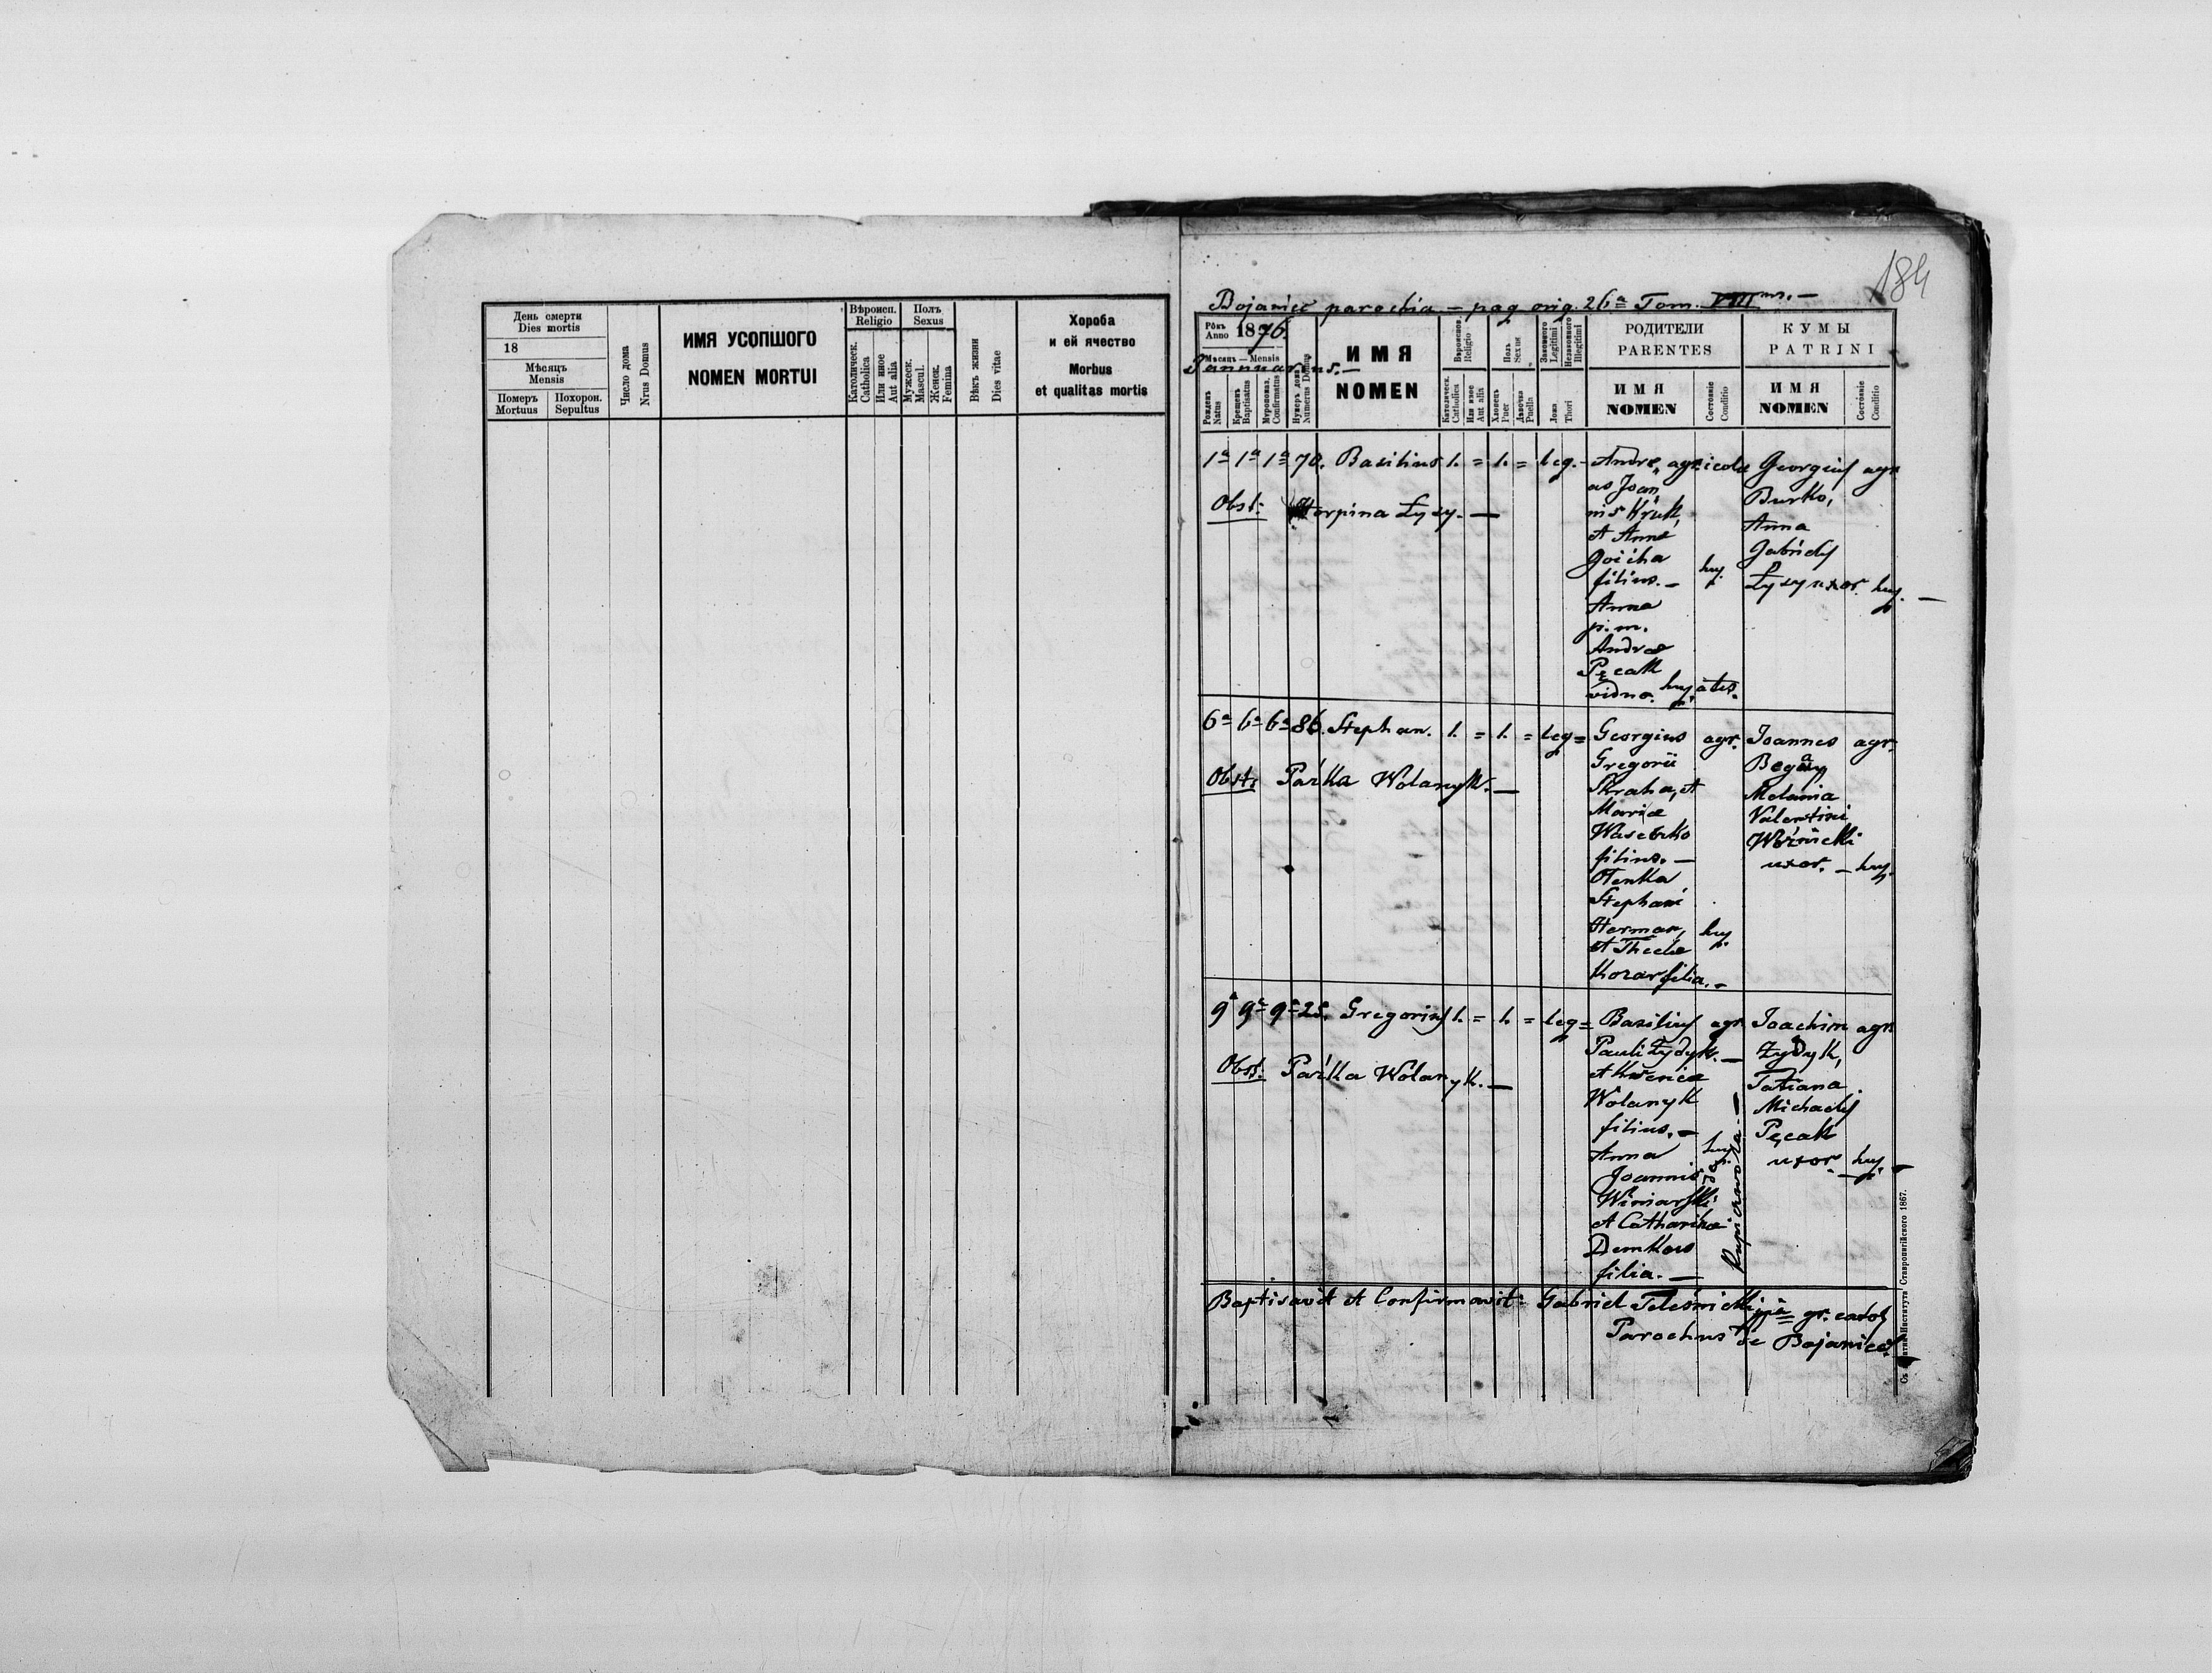 День смерти
Dies mortis
18
Мѣсяцъ
Mensis
Померъ
Mortuus
Похорон.
Sepultus
Число дома
Nrus Domus
ИМЯ УСОПШОГО
NOMEN MORTUI
Вѣроисп.
Religio
Католическ.
Catholica
Или иное
Aut alia
Полъ
Sexus
Мужеск.
Mascul.
Женск.
Femina
Вѣкъ жизни
Dies vitae
Хороба
и ей ячество
Morbus
et qualitas mortis
184
Bojaniec parochia — pag orig. 26ª Tom. VIII
Рôкъ
Anno 1876.
Мѣсяцъ — Mensis
Januarius. —
Рожденъ
Natus
Крещенъ
Baptisatus
Миропомаз.
Confirmatus
Нумеръ дома
Numerus Domus
ИМЯ
NOMEN
Вѣроиспов.
Religio
Католическ.
Catholica
Или иное
Aut alia
Полъ
Sexus
Хлопець
Puer
Дѣвочка
Puella
Законного
Legitimi
Незаконного
Illegitimi
Ложа
Thori
РОДИТЕЛИ
PARENTES
ИМЯ
NOMEN
Состоѣніе
Conditio
КУМЫ
PATRINI
ИМЯ
NOMEN
Состоѣніе
Conditio
1ª 1ª 1ª 70. Basilius 1. = 1. = leg. - Andre„ agricola Georgius agr
as Joan, Burko,
Obst: Horpina Łysy. —
nis Kruk, Anna
et Annæ Gabrielis
filius. — huj. Łysy uxor. huj. —
Anna
p. m.
Andreæ
Pęcak
vidua. huj. 
6ª 6ª 6ª 86. Stephan. 1. = 1. = leg = Georgius agr. Joannes agr.
Gregorii
Obst: Paźka Wolanyk. —
Skraha, et Melania
Mariæ Valentini
filius. — uxor. — huj.
Olenka
Stephani
Herman, huj.
et Theclæ
Kozar filia. —
9ª 9ª 9ª 25. Gregorius 1. = 1. = leg = Basilius agr. Joachim agr
Pauli Żydyk. — Żydyk,
Obst: Paźka Wolanyk. —
et Xseniæ Tatiana
Wolanyk Michaelis
filius. — Pęcak
Anna huj. uxor huj. —
Joannis
Winiarski
et Catharinæ
Demkow
filia. —
Baptisavit et Confirmavit: Gabriel gr. cathol
Parochus de Bojaniec.
Ставропигійского 1867.